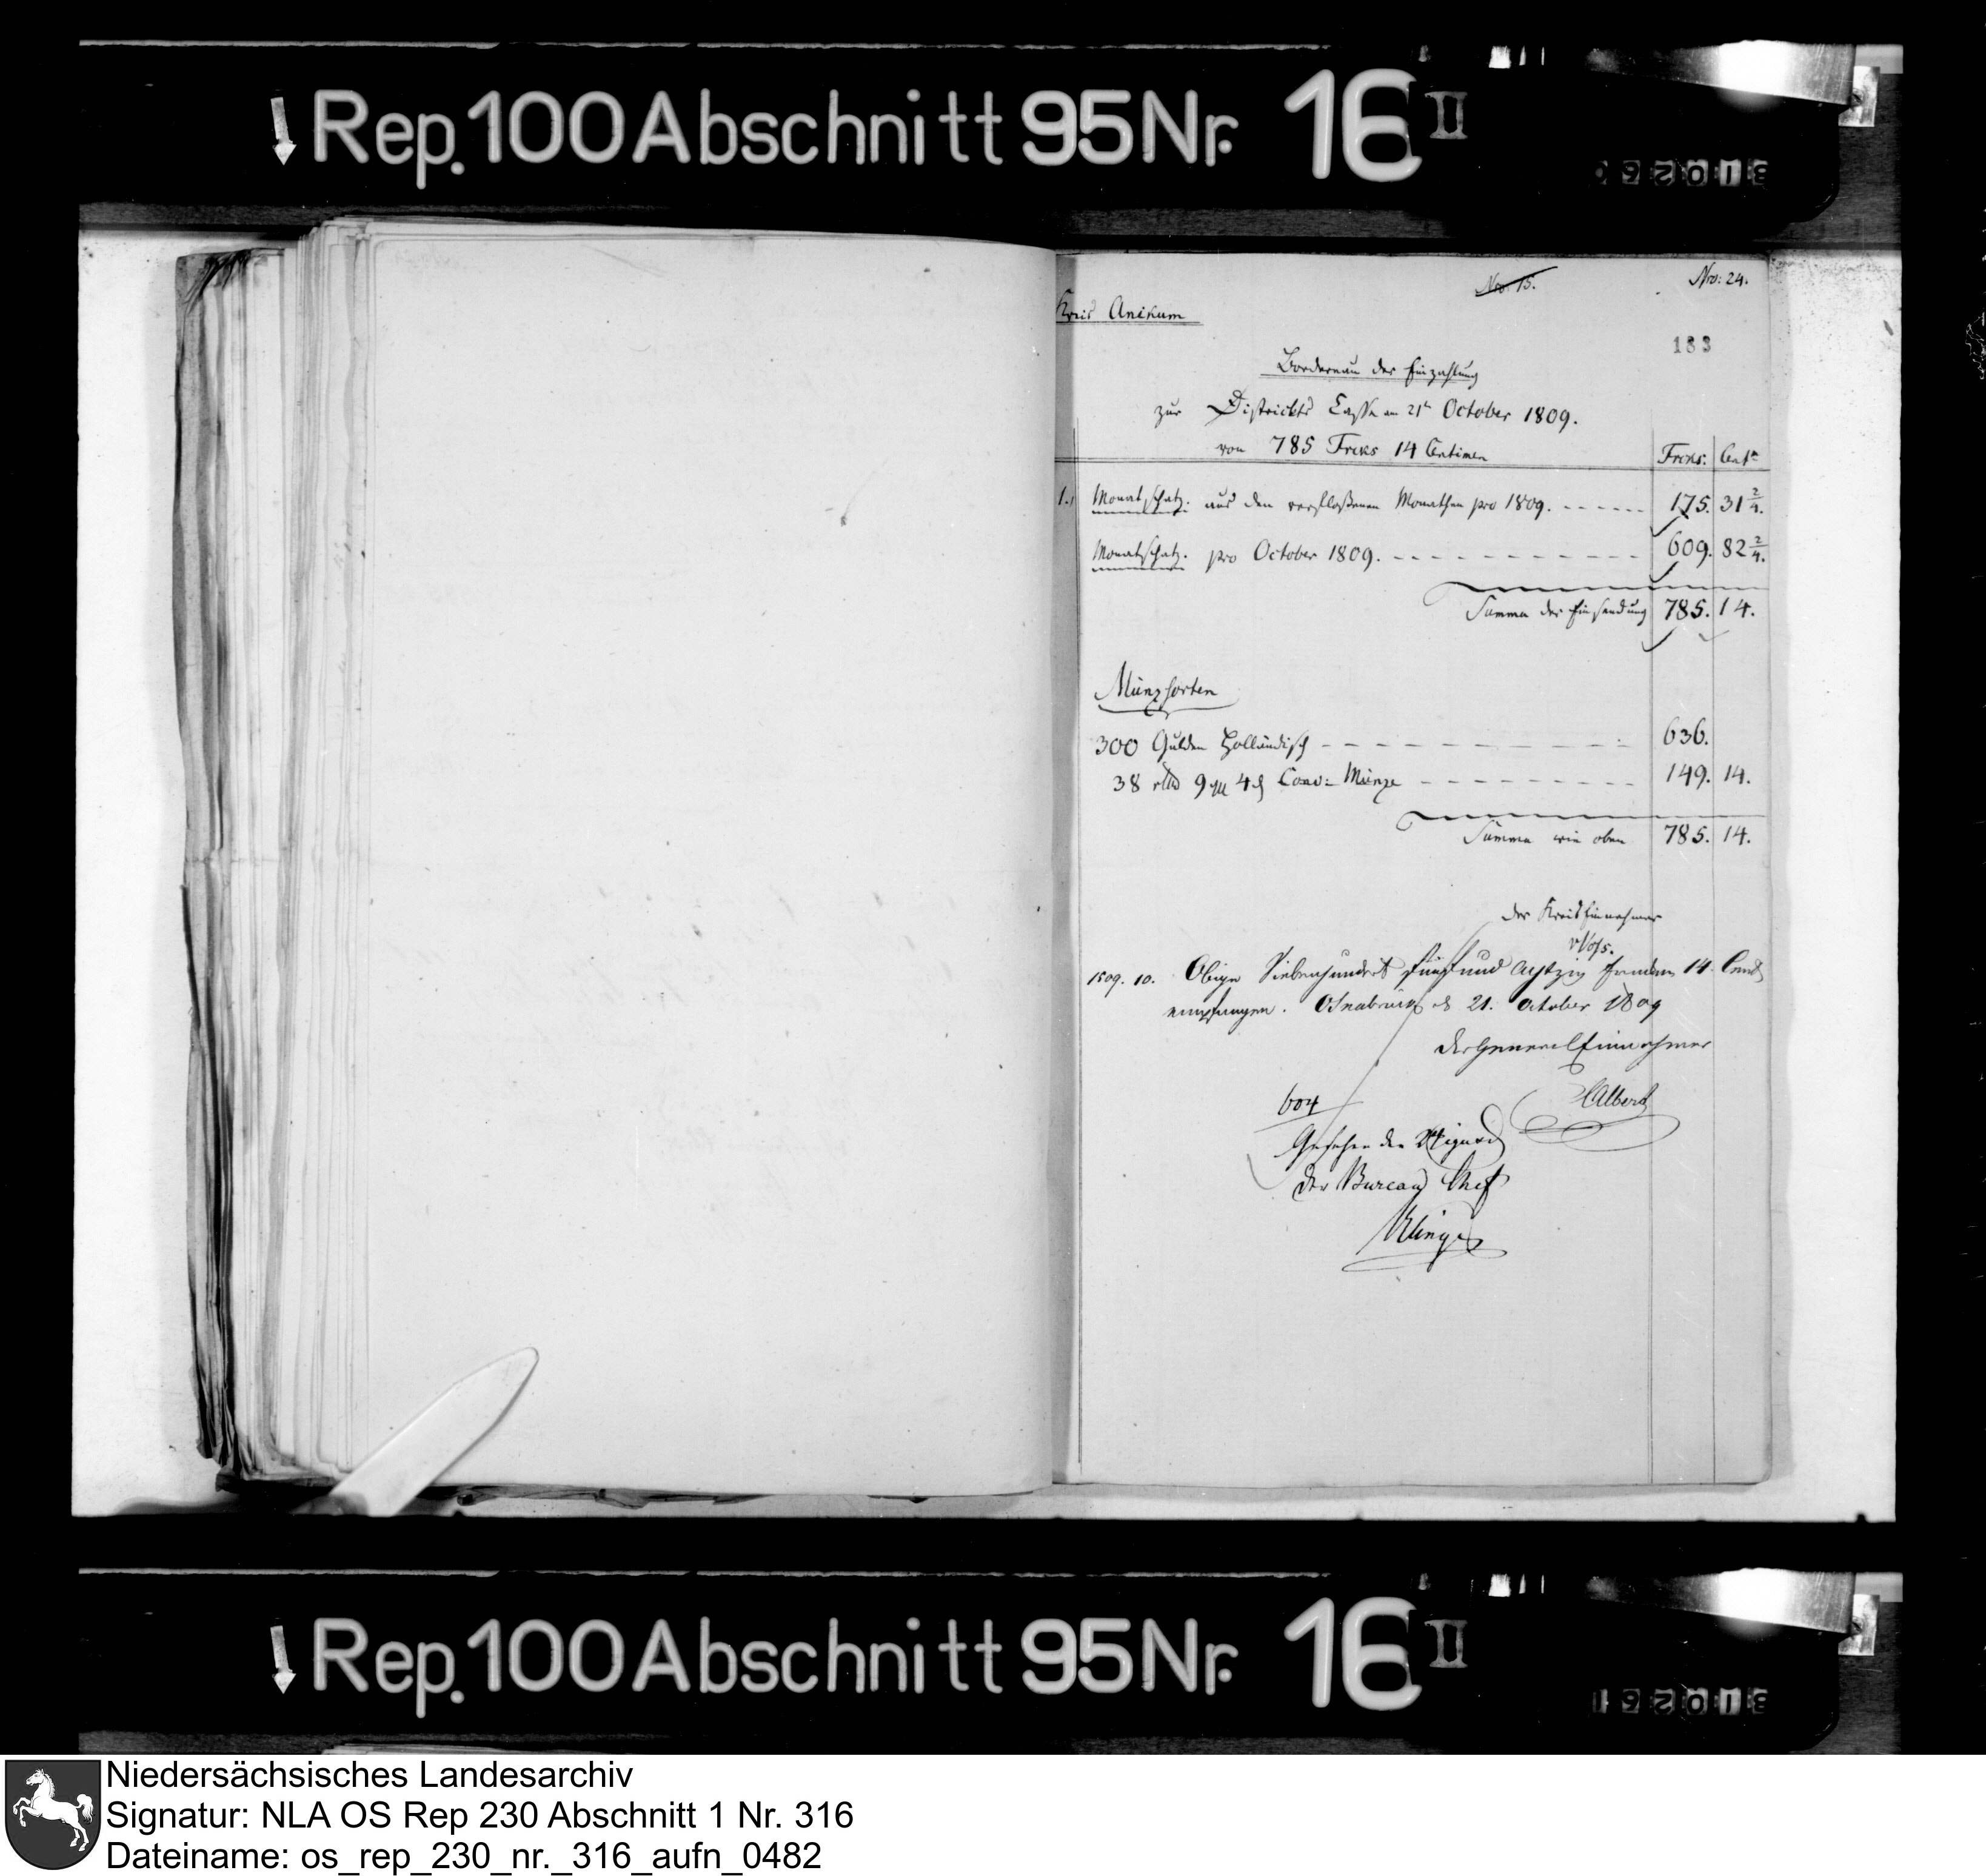 Rep. 100 Abschnitt 95 Nr. 16 II
Nro: 15.
Nro: 24.
Kreis Ankum
183
Bordereau der Einzahlung
zur Districkts Casse am 21t October 1809.
von 785 Frcks 14 Centimen
Frcks. Cent
1., Monatschatz. aus den verfloßenen Monathen pro 1809. 175. 31 2/4.
Monatschatz. pro October 1809. 609. 82 2/4.
Summa der Einsendung 785. 14.
Münzsorten
300 Gulden Holländisch 636.
38 rthl 9 4 Conv: Münze 149. 14.
Summa wie oben 785. 14.
der Kreis Einnehmer
vVoss.
1509. 10. Obige Siebenhundert fünf und Achtzig Franken 14 Cent
empfangen. Osnabrück d 21. October 1809
der General Einnehmer
604
Gesehen
Der Bureau Chef
Rep. 100 Abschnitt 95 Nr. 16 II
Niedersächsisches Landesarchiv
Signatur: NLA OS Rep 230 Abschnitt 1 Nr. 316
Dateiname: os_rep_230_nr._316_aufn_0482